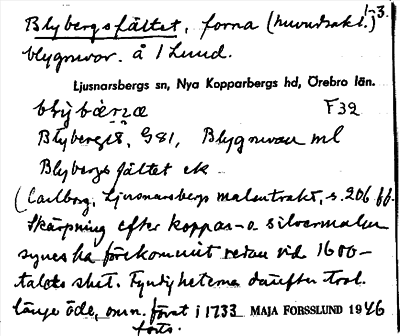 1-3.
Blybergsfältet, forna (huvudsakl.)
blygruvor. å 1 Lund.
Ljusnarsbergs sn, Nya Kopparbergs hd, Örebro län.
F39
Blyberget 8, G81, Blygruvan ml
Blybergsfältet ek
(Carlborg, Ljusnarsbergs malmtrakt, s. 206 ff.
Skärpning efter koppar- o. silvermalm
synes ha förekommit redan vid 1600-
talets slut. Fyndigheterna därefter trol.
länge öde, omn. först i 1733 MAJA FORSSLUND 1946
forts.